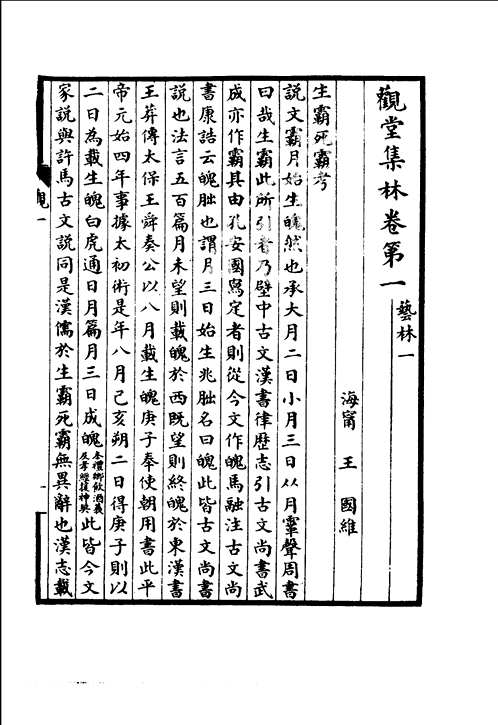 觀堂集林卷第一
藝林一
海甯 王國維
生霸死霸考
說文霸月始生魄然也承大月二日小月三日从月䨣聲周書
曰哉生霸此所引者乃壁中古文漢書律歷志引古文尚書武
成亦作霸其由孔安國寫定者則從今文作魄馬融注古文尚
書康誥云魄朏也謂月三日始生兆朏名曰魄此皆古文尚書
說也法言五百篇月未望則載魄於西既望則終魄於東漢書
王莽傳太保王舜奏公以八月載生魄庚子奉使朝用書此平
帝元始四年事據太初術是年八月己亥朔二日得庚子則以
二日為載生魄白虎通日月篇月三日成魄本禮鄉飲酒義及孝經援神契此皆今文
家說與許馬古文說同是漢儒於生霸死霸無異辭也漢志載
觀一
一